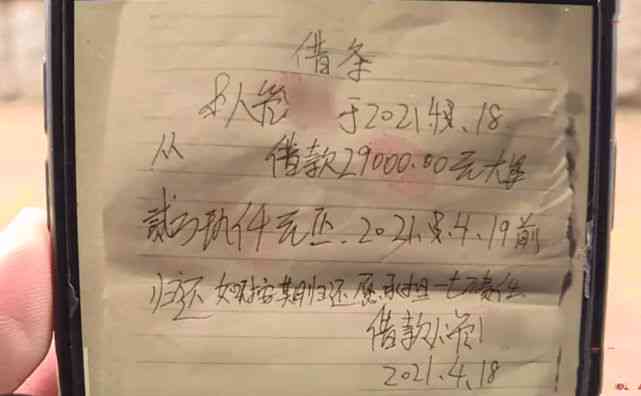 借条
本人管 于2021.4.18
从 借款29000.00元大写
贰万玖仟元正.2021.4.19前
归还 如不按期归还愿承担一切责任
借款人管
2021.4.18